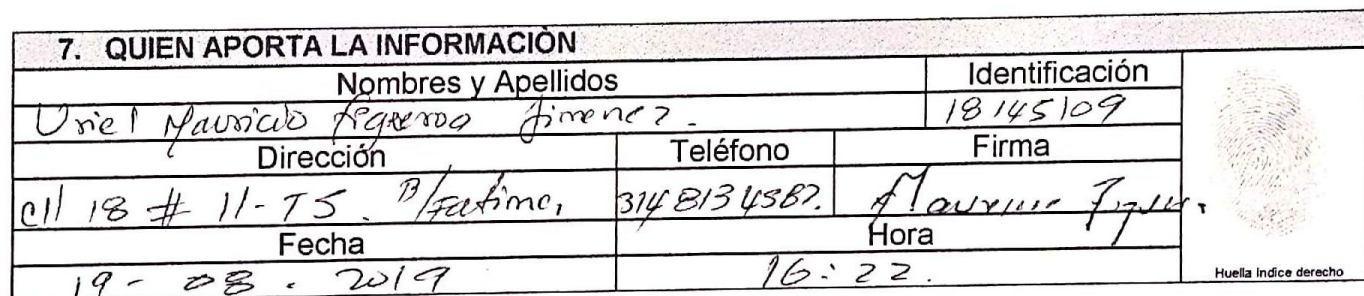 7. QUIEN APORTA LA INFORMACIÓN
Nombres y Apellidos Identificación
Uriel Mauricio Figueroa Jimenez. 18145109
Dirección Teléfono Firma
cll 18 # 11-75. B/Fatima, 3148134587. Mauricio Figue.
Fecha Hora
19 - 08 . 2019 16:22.
Huella Indice derecho